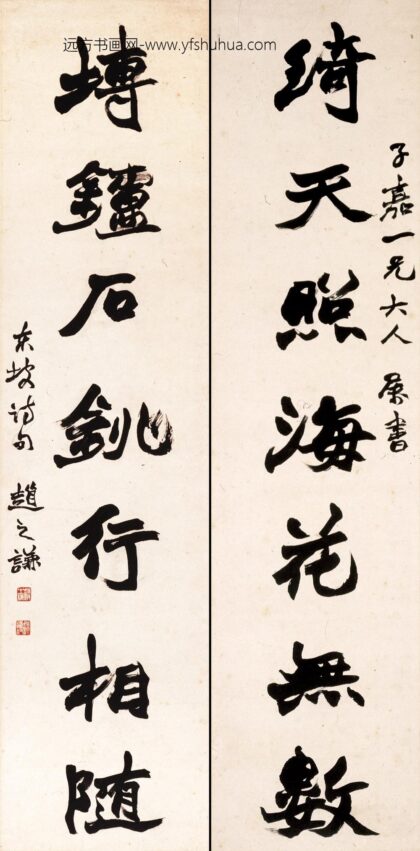 远方书画网-www.yfshuhua.com
子嘉一兄大人 屬書
綺天照海花無數
塼鑪石銚行相随
東坡詩句 趙之謙